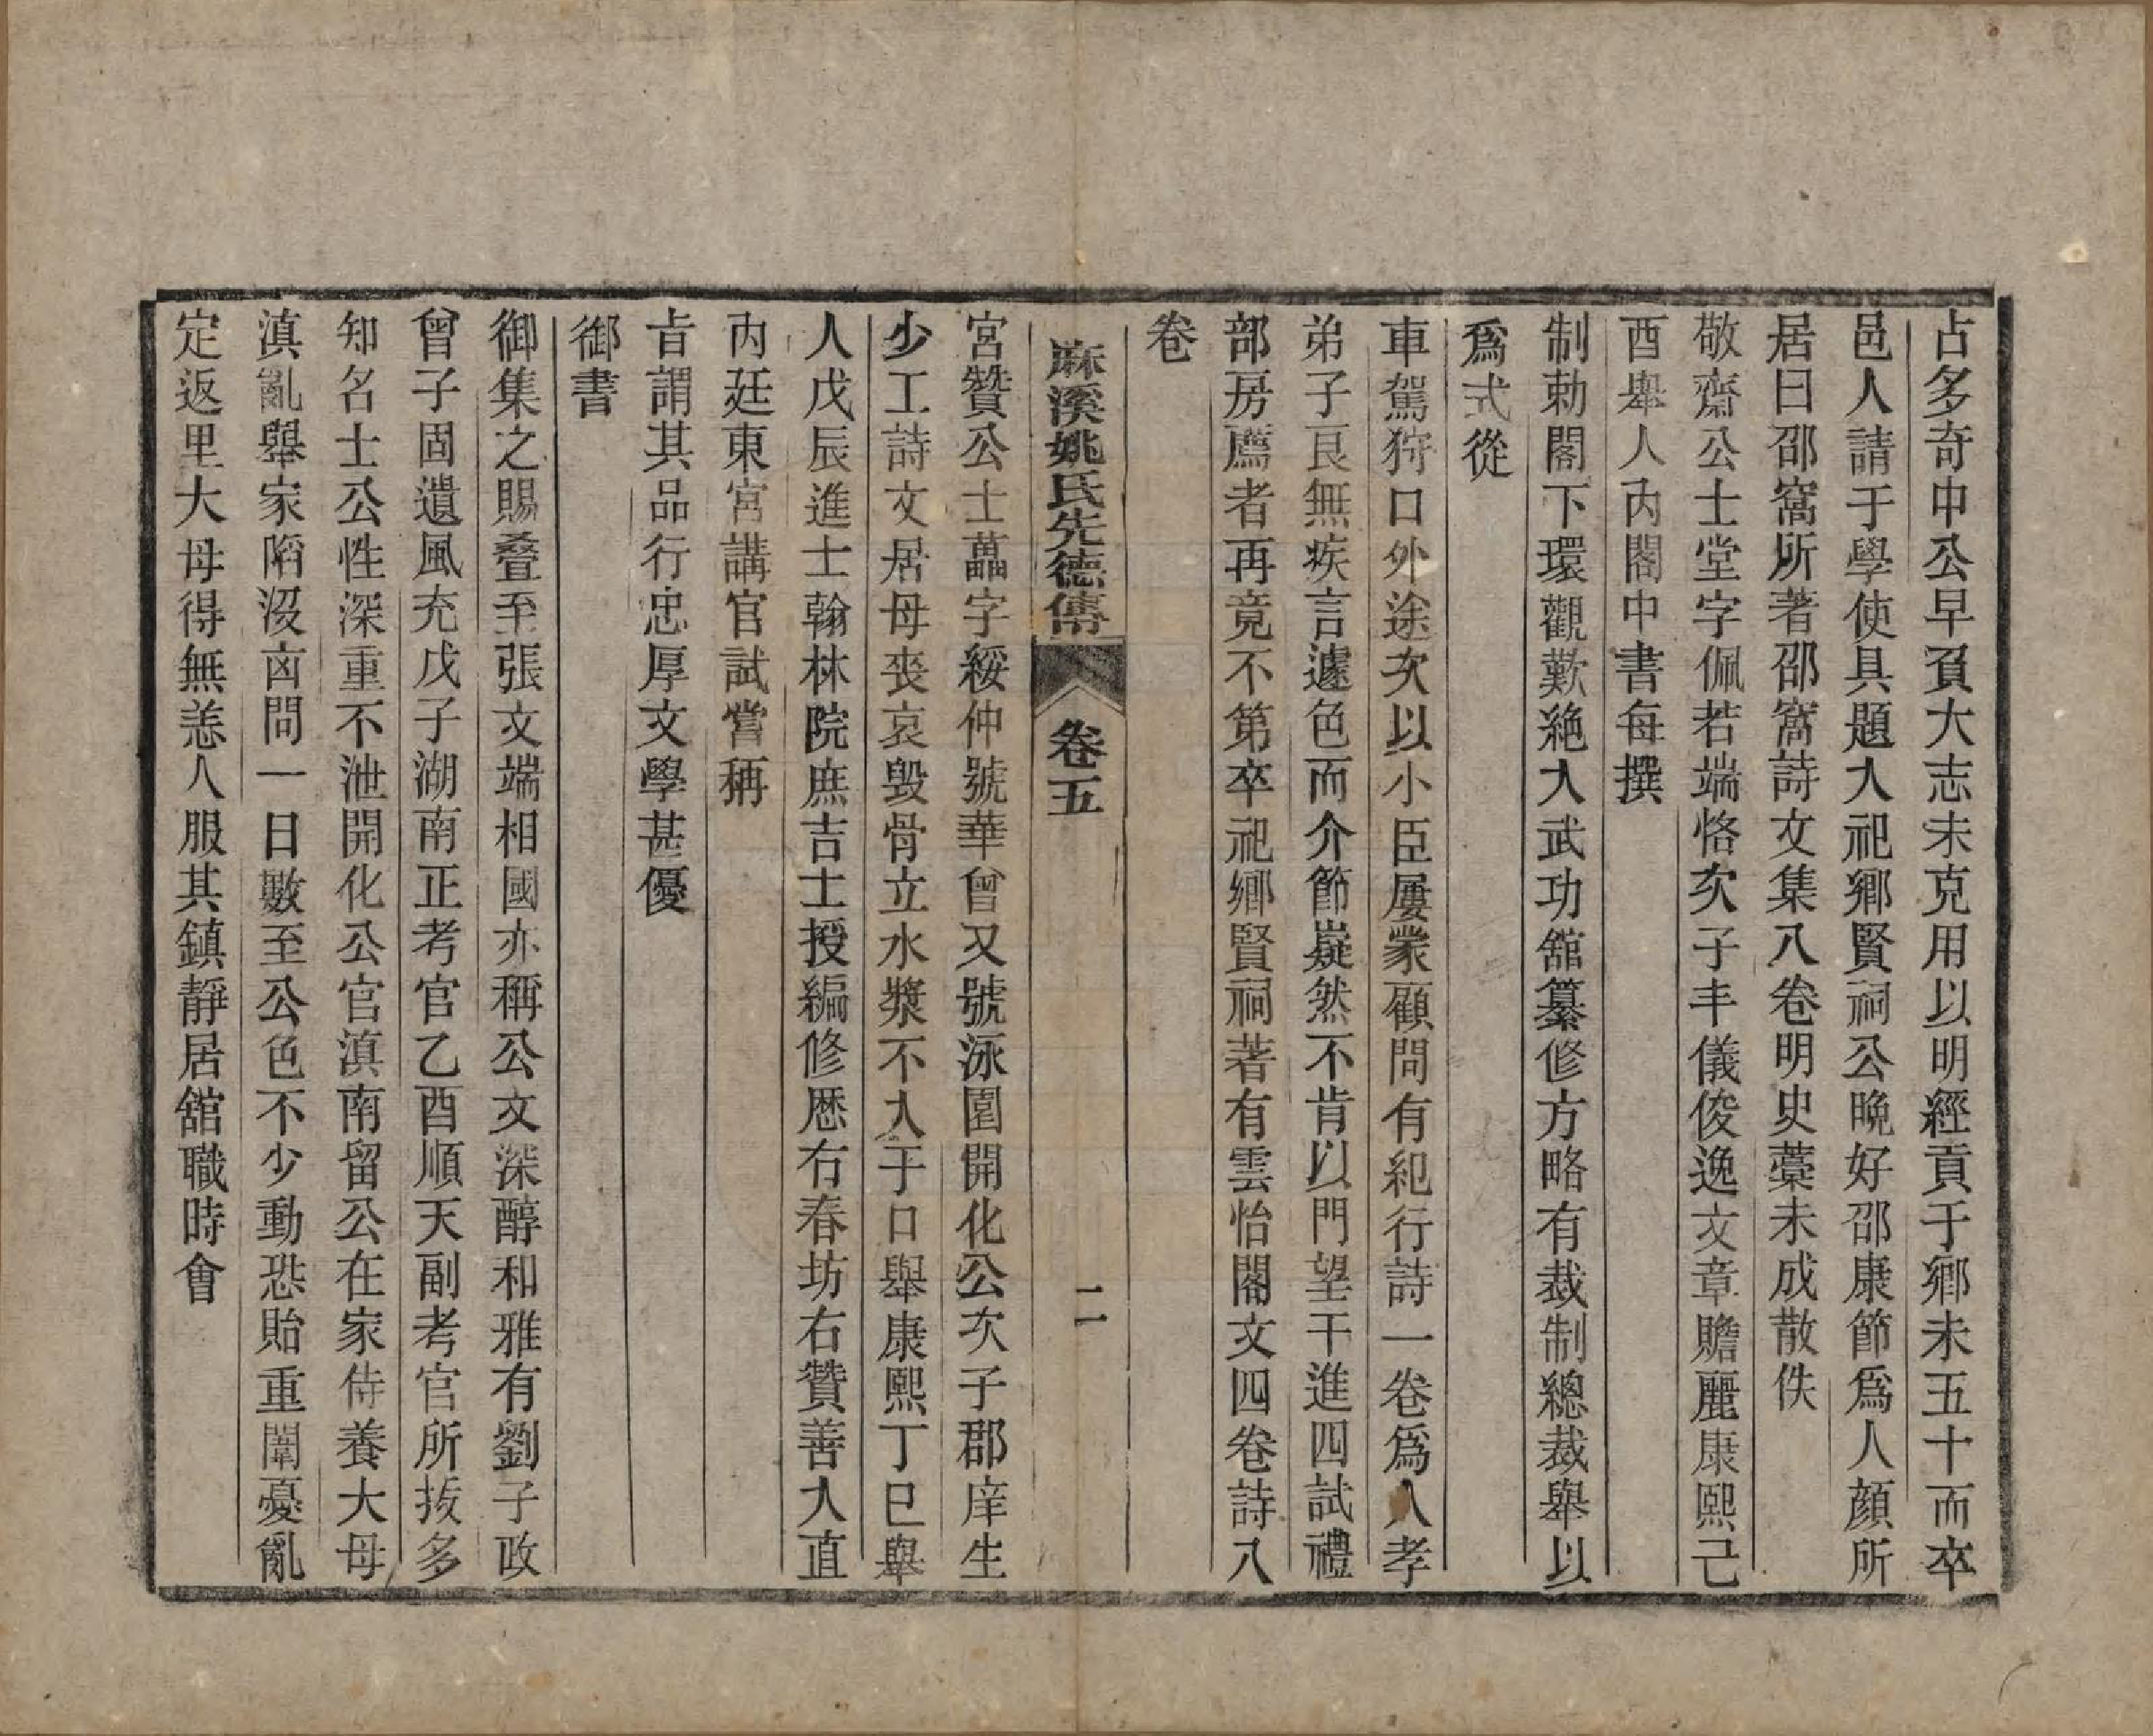 占多奇中公早負大志未克用以明經貢于鄉未五十而卒
邑人請于學使具題入祀鄉賢祠公晚好邵康節爲人顔所
居曰邵窩所著邵窩詩文集八卷明史藁未成散佚
敬齋公士堂字佩若端恪次子丰儀俊逸文章贍麗康熙己
酉舉人內閣中書每撰
制勅閣下環觀歎絶入武功舘纂修方略有裁制總裁舉以
爲式從
車駕狩口外途次以小臣屢蒙顧問有紀行詩一卷爲人孝
弟子良無疾言遽色而介節嶷然不肯以門望干進四試禮
部房薦者再竟不第卒祀鄉賢祠著有雲怡閣文四卷詩八
卷
麻溪姚氏先德傳 卷五 二
宮贊公士藟字綏仲號華曾又號泳園開化公次子郡庠生
少工詩文居母喪哀毁骨立水漿不入于口舉康熙丁巳舉
人戊辰進士翰林院庶吉士授編修歴右春坊右贊善入直
內廷東宮講官試嘗稱
旨謂其品行忠厚文學甚優
御書
御集之賜叠至張文端相國亦稱公文深醇和雅有劉子政
曾子固遺風充戊子湖南正考官乙酉順天副考官所拔多
知名士公性深重不泄開化公官滇南留公在家侍養大母
滇亂舉家陷沒㐫問一日數至公色不少動恐貽重闈憂亂
定返里大母得無恙人服其鎮靜居舘職時會